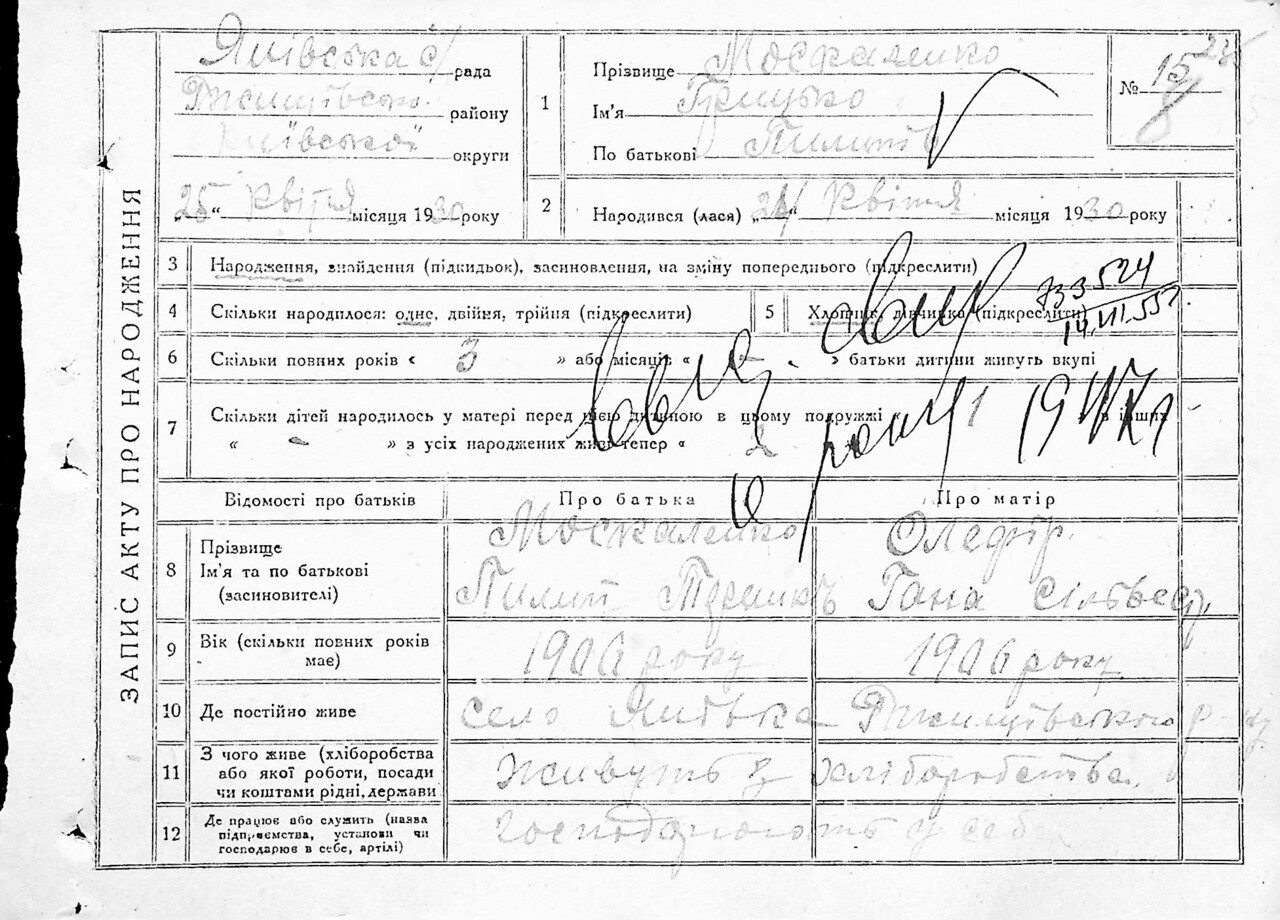 ЗАПИС АКТУ ПРО НАРОДЖЕННЯ
Янівська с/ рада
Ржищівсько. району
Київської округи
25 " Квітня місяця 1930 року
1 Прізвище Москаленко
Ім'я Грицько
По батькові Пилипів
№ 15
8
2 Народився (лася) " 24 " Квітня місяця 1930 року
3 Народження, знайдення (підкидьок), засиновлення, на зміну попереднього (підкреслити)
4 Скільки народилося: одне, двійня, трійня (підкреслити)
5 Хлопчик, дівчинка (підкреслити)
733524
14.VII.55
6 Скільки повних років « 3 » або місяців « » батьки дитини живуть вкупі
7 Скільки дітей народилось у матері перед цією дитиною в цьому подружжі « 1 » в інших
« - » з усіх народжених живі тепер « 2
року 1947
Відомості про батьків Про батька Про матір
8 Прізвище
Ім'я та по батькові
(засиновителі)
Москаленко Олефір.
Пилип Гана Сільвест.
9 Вік (скільки повних років має)
1906 року 1906 року
10 Де постійно живе село Янівка Ржищівського р-ну
11 З чого живе (хліборобства
або якої роботи, посади
чи коштами рідні, держави
Живуть з хліборобства.
12 Де працює або служить (назва
підприємства, установи чи
господарює в себе, артілі)
господарюють у себе